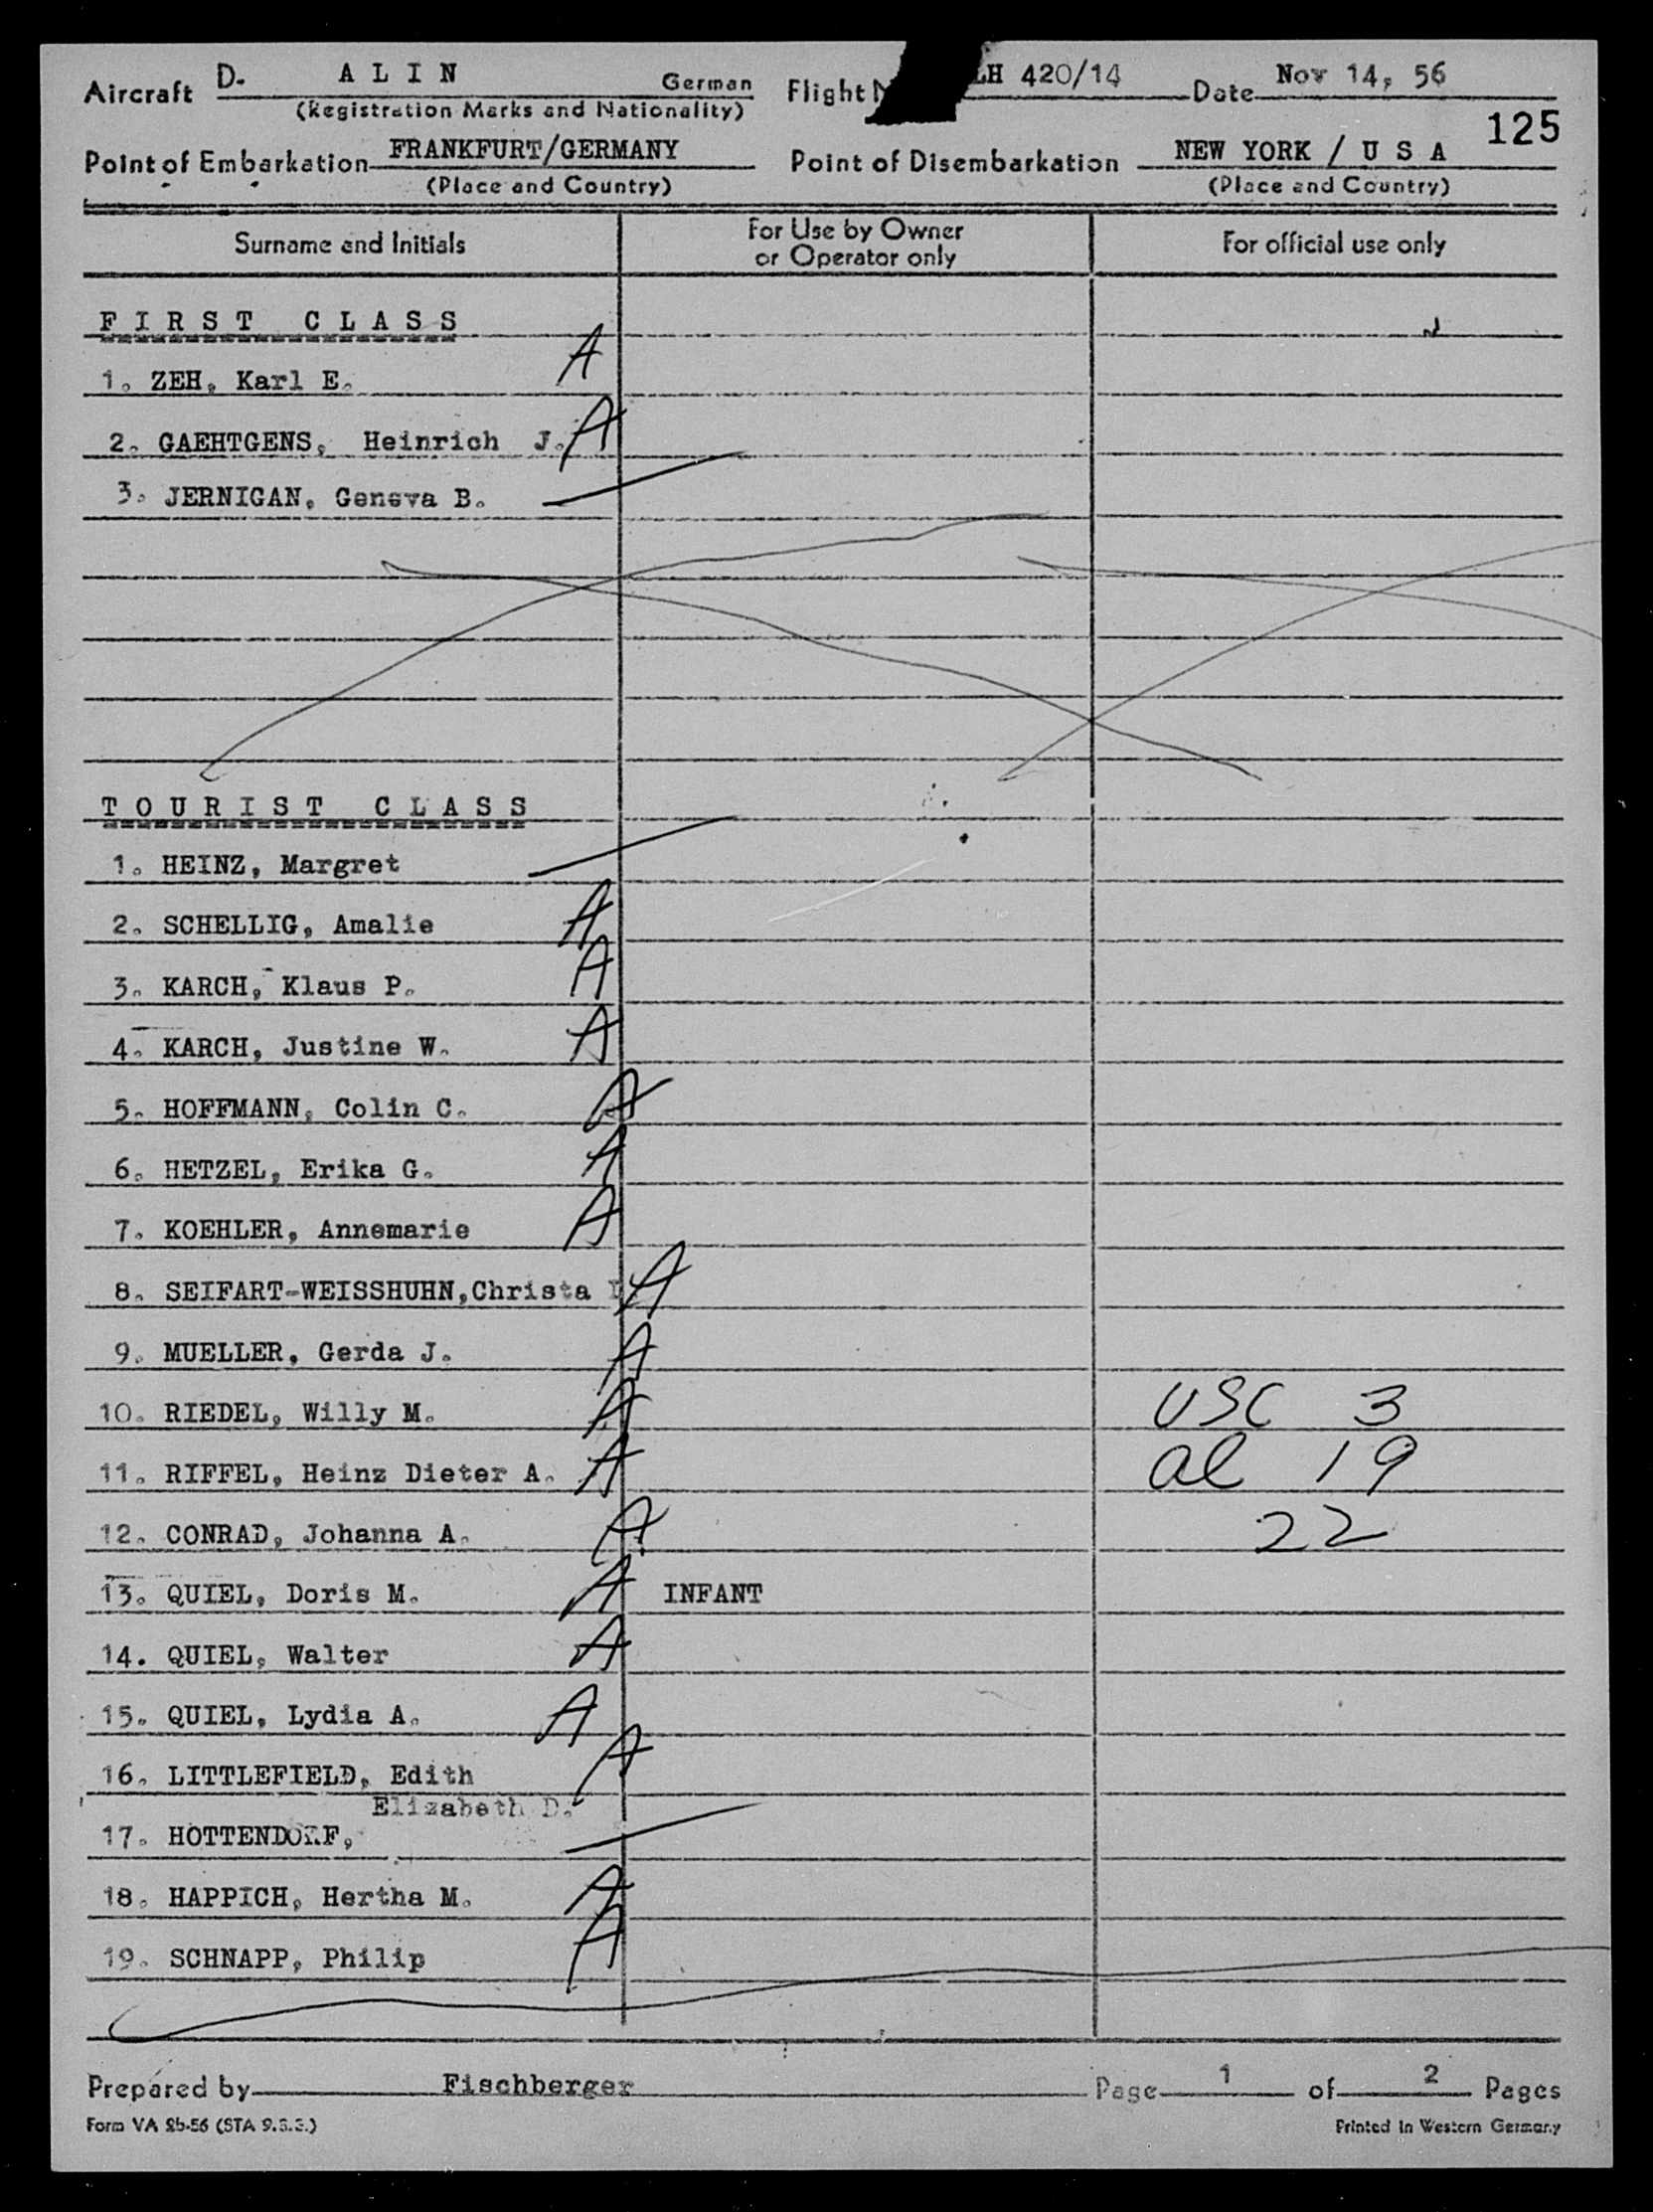 Aircraft D- A L I N German Flight LH 420/14 Date Nov 14, 56
(Registration Marks and Nationality)
125
Point of Embarkation FRANKFURT/GERMANY Point of Disembarkation NEW YORK / U S A
(Place and Country) (Place and Country)
Surname and Initials For Use by Owner or Operator only For official use only
F I R S T   C L A S S
1. ZEH, Karl E. A
2. GAEHTGENS, Heinrich J. A
3. JERNIGAN, Geneva B.
T O U R I S T   C L A S S
1. HEINZ, Margret
2. SCHELLIG, Amalie A
3. KARCH, Klaus P. A
4. KARCH, Justine W. A
5. HOFFMANN, Colin C. A
6. HETZEL, Erika G. A
7. KOEHLER, Annemarie A
8. SEIFART-WEISSHUHN,Christa A
9. MUELLER, Gerda J. A
10. RIEDEL, Willy M. A USC 3
11. RIFFEL, Heinz Dieter A. A al 19
12. CONRAD, Johanna A. A 22
13. QUIEL, Doris M. A INFANT
14. QUIEL, Walter A
15. QUIEL, Lydia A. A
16. LITTLEFIELD, Edith A
Elizabeth D.
17. HOTTENDORF,
18. HAPPICH, Hertha M. A
19. SCHNAPP, Philip A
Prepared by Fischberger Page 1 of 2 Pages
Form VA 2b-56 (STA 9.3.3.) Printed in Western Germany